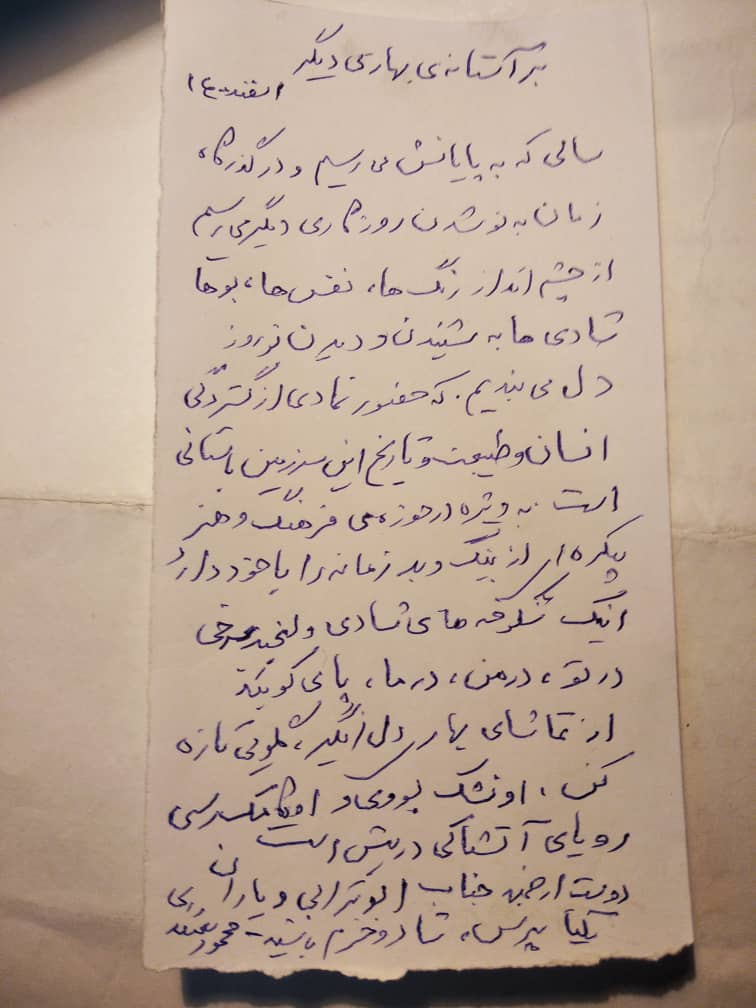 بر آستانه‌ی بهاری دیگر
اسفند ۱۴۰۱
سالی که به پایانش می رسیم و در گذرگاه
زمان به نو شدن روزگاری دیگر می رسیم
از چشم انداز رنگ ها، نفس ها، بوها
شادی ها به شنیدن و دیدن نوروز
دل می بندیم. که حضور نمادی از گستردگی
انسان و طبیعت و تاریخ این سرزمین باستانی
است. به ویژه در حوزه ی فرهنگ و هنر
پیکره ای از نیک و بد زمانه را با خود دارد
اینک شکوفه های شادی و لبخند
در تو، در من، در ما، پای کوبند
از تماشای بهار دل انگیز، گلویی تازه
کن،
رویای آتشناکی در پیش است
دوست ارجمند جناب ابوترابی و یاران
کیا پرس، شاد و خرم باشید - محمود